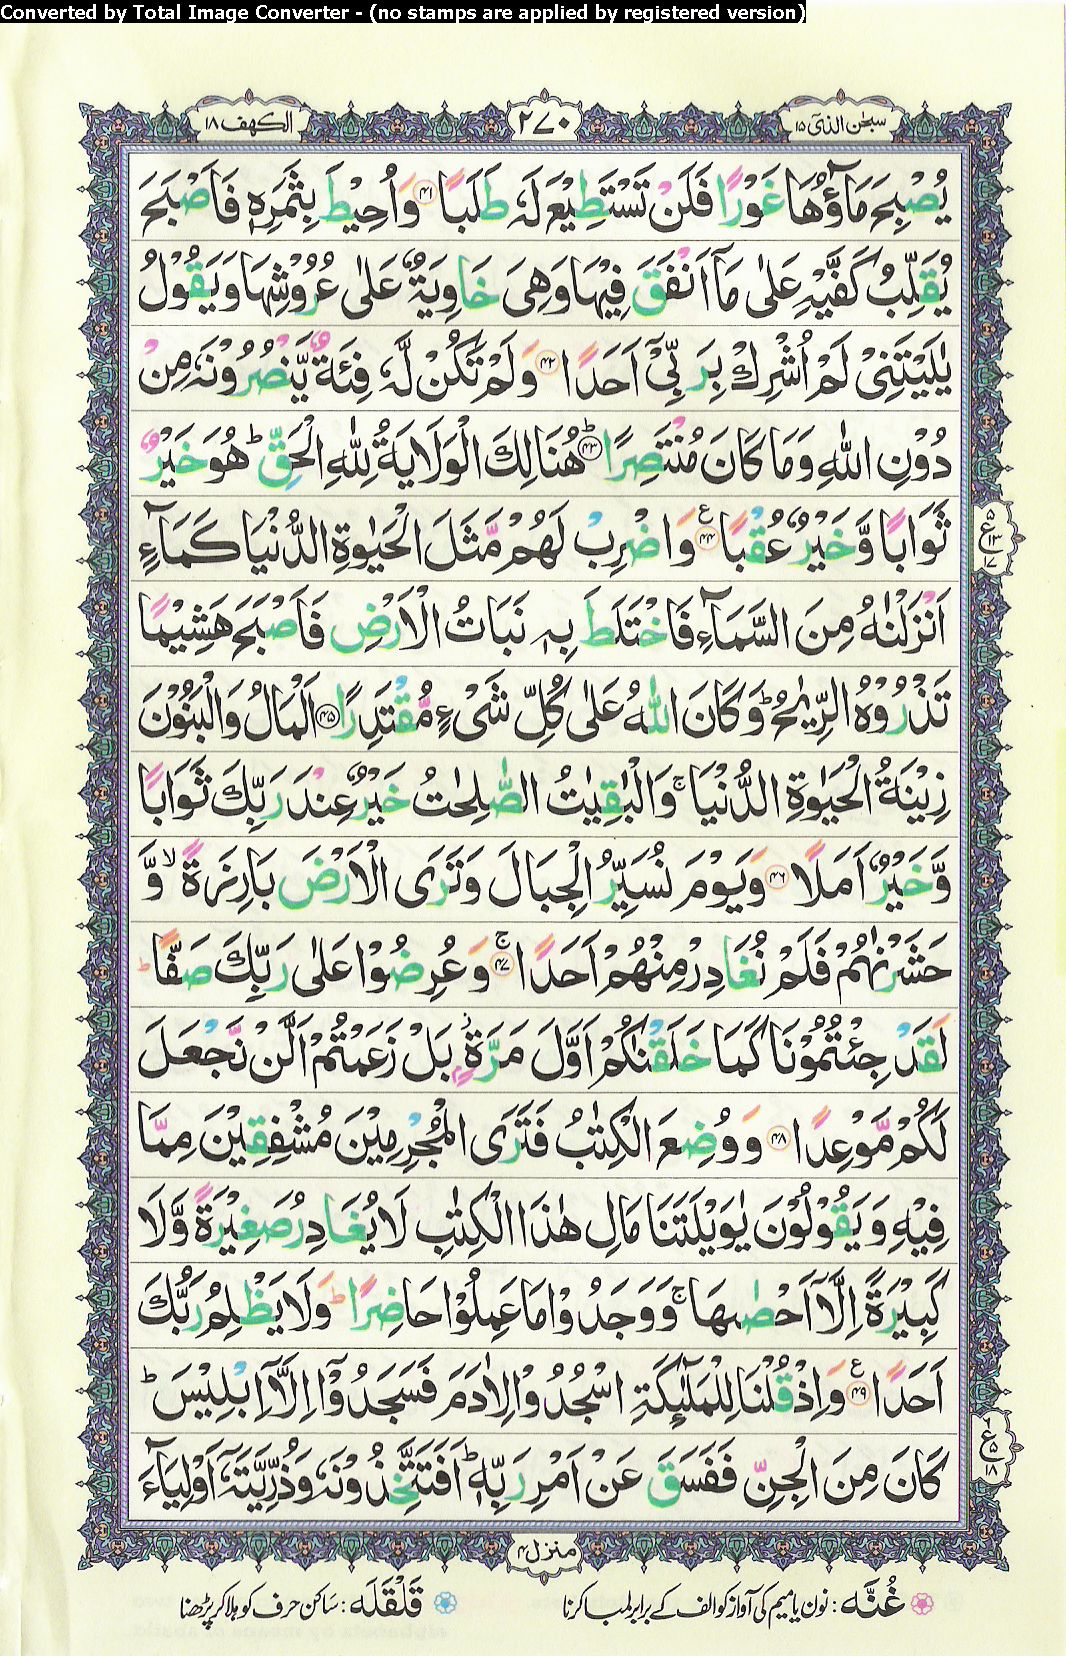 Converted by Total Image Converter - (no stamps are applied by registered version)
سبحٰن الذیٓ ۱۵
۲۷۰
الکهف ۱۸
یُصْبِحَ مَآؤُهَا غَوْرًا فَلَنْ تَسْتَطِیْعَ لَهٗ طَلَبًا ۴۱ وَاُحِیْطَ بِثَمَرِهٖ فَاَصْبَحَ
یُقَلِّبُ کَفَّیْهِ عَلٰی مَاۤ اَنْفَقَ فِیْهَا وَهِیَ خَاوِیَةٌ عَلٰی عُرُوْشِهَا وَیَقُوْلُ
یٰلَیْتَنِیْ لَمْ اُشْرِكْ بِرَبِّیْۤ اَحَدًا ۴۲ وَلَمْ تَکُنْ لَّهٗ فِئَةٌ یَّنْصُرُوْنَهٗ مِنْ
دُوْنِ اللّٰهِ وَمَا کَانَ مُنْتَصِرًا ۴۳ؕ هُنَالِكَ الْوَلَایَةُ لِلّٰهِ الْحَقِّؕ هُوَ خَیْرٌ
ثَوَابًا وَّخَیْرٌ عُقْبًا ۴۴ ع وَاضْرِبْ لَهُمْ مَّثَلَ الْحَیٰوةِ الدُّنْیَا کَمَآءٍ
۵
ع ۱۳
۱۷
اَنْزَلْنٰهُ مِنَ السَّمَآءِ فَاخْتَلَطَ بِهٖ نَبَاتُ الْاَرْضِ فَاَصْبَحَ هَشِیْمًا
تَذْرُوْهُ الرِّیٰحُؕ وَکَانَ اللّٰهُ عَلٰی کُلِّ شَیْءٍ مُّقْتَدِرًا ۴۵ اَلْمَالُ وَالْبَنُوْنَ
زِیْنَةُ الْحَیٰوةِ الدُّنْیَاۚ وَالْبٰقِیٰتُ الصّٰلِحٰتُ خَیْرٌ عِنْدَ رَبِّكَ ثَوَابًا
وَّخَیْرٌ اَمَلًا ۴۶ وَیَوْمَ نُسَیِّرُ الْجِبَالَ وَتَرَی الْاَرْضَ بَارِزَةً ۙ وَّ
حَشَرْنٰهُمْ فَلَمْ نُغَادِرْ مِنْهُمْ اَحَدًا ۴۷ۚ وَعُرِضُوْا عَلٰی رَبِّكَ صَفًّاؕ
لَقَدْ جِئْتُمُوْنَا کَمَا خَلَقْنٰکُمْ اَوَّلَ مَرَّةٍۭؗ بَلْ زَعَمْتُمْ اَلَّنْ نَّجْعَلَ
لَکُمْ مَّوْعِدًا ۴۸ وَوُضِعَ الْکِتٰبُ فَتَرَی الْمُجْرِمِیْنَ مُشْفِقِیْنَ مِمَّا
فِیْهِ وَیَقُوْلُوْنَ یٰوَیْلَتَنَا مَالِ هٰذَا الْکِتٰبِ لَا یُغَادِرُ صَغِیْرَةً وَّلَا
کَبِیْرَةً اِلَّاۤ اَحْصٰىهَاۚ وَوَجَدُوْا مَا عَمِلُوْا حَاضِرًاؕ وَلَا یَظْلِمُ رَبُّكَ
اَحَدًا ۴۹ ع وَاِذْ قُلْنَا لِلْمَلٰٓئِکَةِ اسْجُدُوْا لِاٰدَمَ فَسَجَدُوْۤا اِلَّاۤ اِبْلِیْسَؕ
۶
ع ۵
۱۸
کَانَ مِنَ الْجِنِّ فَفَسَقَ عَنْ اَمْرِ رَبِّهٖؕ اَفَتَتَّخِذُوْنَهٗ وَذُرِّیَّتَهٗۤ اَوْلِیَآءَ
منزل ۴
غُنَّه : نون یا میم کی آواز کو الف کے برابر لمبا کرنا
قَلْقَلَه : ساکن حرف کو ہلا کر پڑھنا